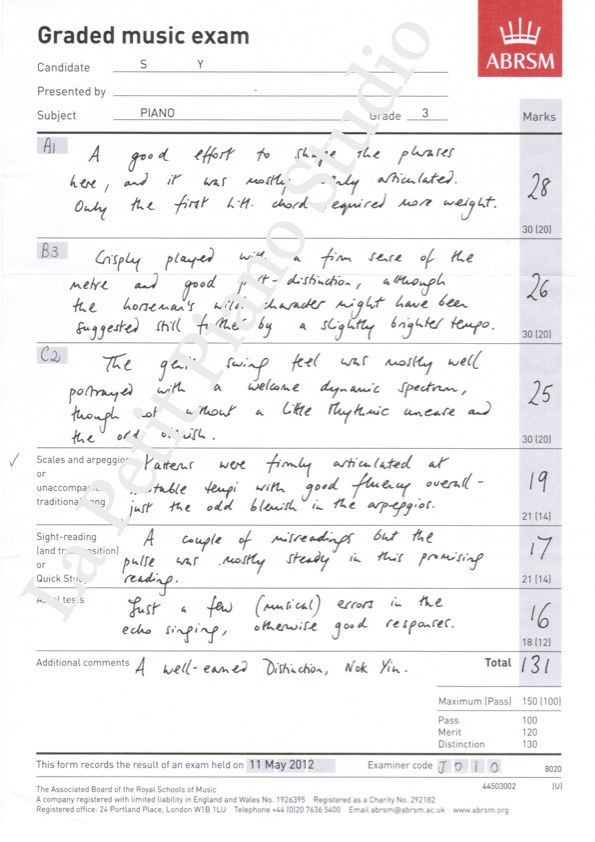 Graded music exam
ABRSM
Candidate S Y
Presented by
Subject PIANO Grade 3 Marks
A1 A good effort to shape the phrases
here, and it was mostly articulated.
Only the first L.H. chord required more weight. 28
30 (20)
B3 Crisply played with a firm sense of the
metre and good part-distinction, although
the horseman's wild character might have been 26
suggested still further by a slightly brighter tempo.
30 (20)
C2 The swing feel was mostly well
portrayed with a welcome dynamic spectrum, 25
though not without a little rhythmic unease and
the odd blemish.
30 (20)
✓ Scales and arpeggios Patterns were firmly articulated at
or
unaccompanied suitable tempi with good fluency overall - 19
traditional song just the odd blemish in the arpeggios.
21 (14)
Sight-reading A couple of misreadings but the
(and transposition) pulse was mostly steady in this promising 17
or
Quick Study reading.
21 (14)
Aural tests Just a few (musical) errors in the
echo singing, otherwise good responses. 16
18 (12)
Additional comments A well-earned Distinction, Nok Yin. Total 131
Maximum (Pass) 150 (100)
Pass 100
Merit 120
Distinction 130
This form records the result of an exam held on 11 May 2012 Examiner code J010 8020
44503002 (U)
The Associated Board of the Royal Schools of Music
A company registered with limited liability in England and Wales No. 1926395 Registered as a Charity No. 292182
Registered office: 24 Portland Place, London W1B 1LU Telephone +44 (0)20 7636 5400 Email abrsm@abrsm.ac.uk www.abrsm.org
La Petit Piano Studio